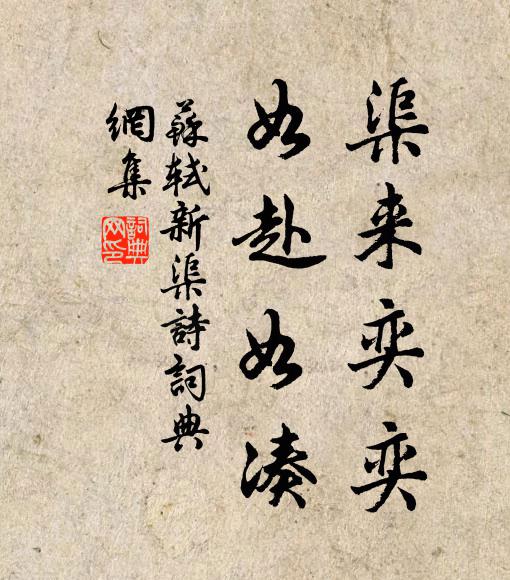 渠来奕奕
如赴如凑
蘇軾新渠詩詞典
網集
詞典
网印